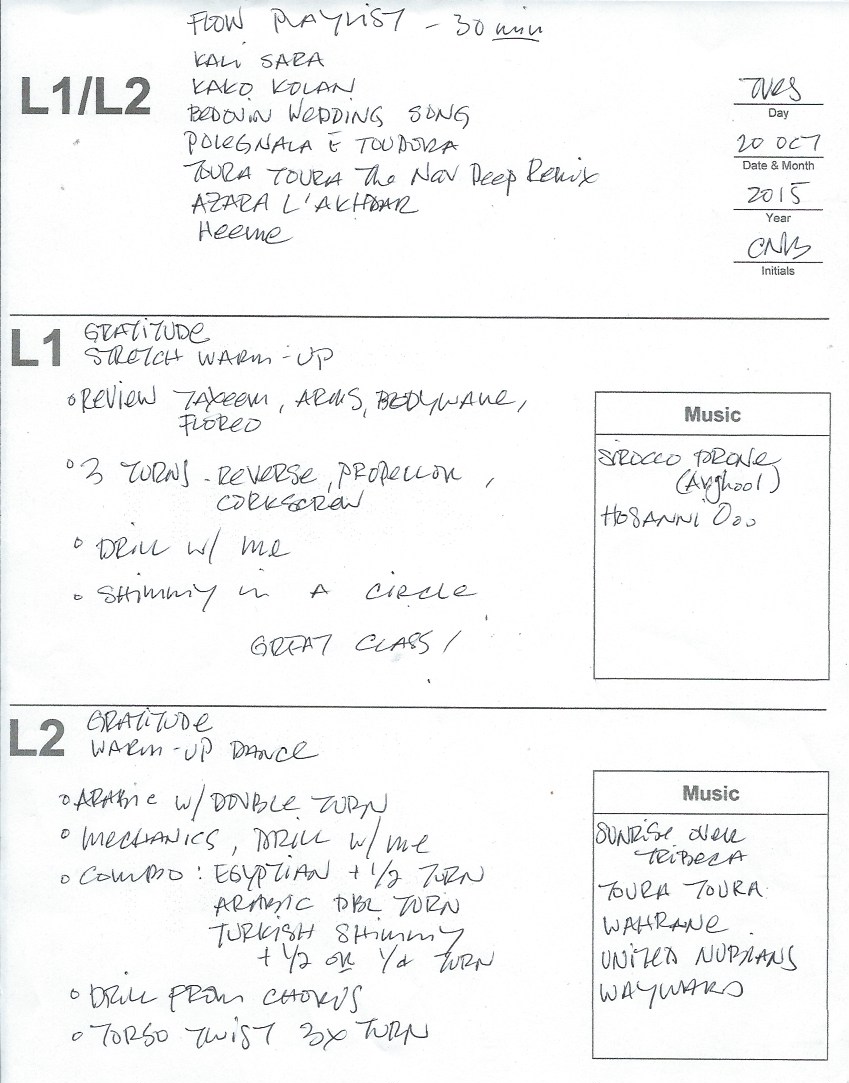 FLOW PLAYLIST - 30 min
L1/L2
KALI SARA
KAKO KOLAN
BEDOUIN WEDDING SONG
POLEGNALA E TOUDORA
TOURA TOURA The Nav Deep Remix
AZARA L'AKHDAR
Heeme
TUES
Day
20 OCT
Date & Month
2015
Year
CNB
Initials
L1
GRATITUDE
STRETCH WARM-UP
REVIEW TAXEEM, ARMS, BODYWAVE,
FLOREO
3 TURNS - REVERSE, PROPELLOR,
CORKSCREW
DRILL W/ ME
SHIMMY IN A CIRCLE
GREAT CLASS!
Music
SIROCCO DRONE
(Arghool)
HOSANNI Ooo
L2
GRATITUDE
WARM-UP DANCE
ARABIC W/ DOUBLE TURN
MECHANICS, DRILL W/ ME
COMBO: EGYPTIAN + 1/2 TURN
ARABIC DBL TURN
TURKISH SHIMMY
+ 1/2 OR 1/4 TURN
DRILL FROM CHORUS
TORSO TWIST 3X TURN
Music
SUNRISE OVER
TRIBECA
TOURA TOURA
WAHRANE
UNITED NUBIANS
WAYWARD